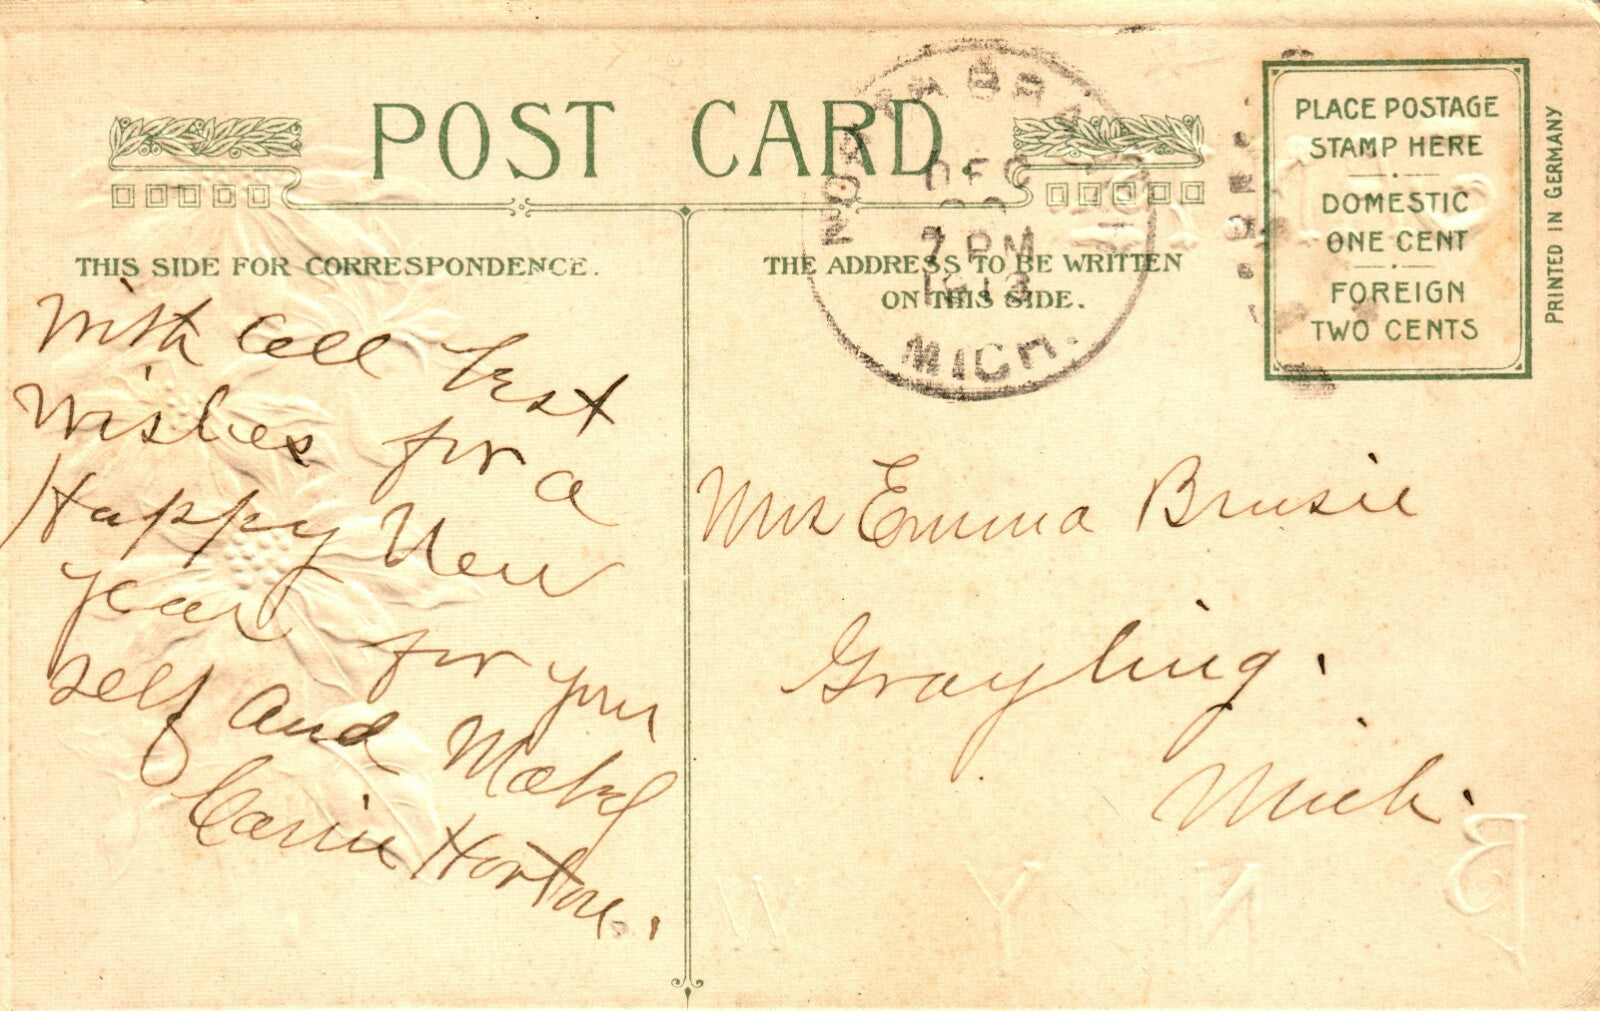 POST CARD.
NORTH BRANCH
DEC
7 PM
1913
MICH.
PLACE POSTAGE
STAMP HERE
DOMESTIC
ONE CENT
FOREIGN
TWO CENTS
PRINTED IN GERMANY
THIS SIDE FOR CORRESPONDENCE.
THE ADDRESS TO BE WRITTEN
ON THIS SIDE.
With all best
Wishes for a
Happy New
year for your
self and Mabel
Carrie Horton.
Mrs Emma Brusie
Grayling.
Mich.